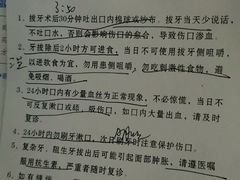 3:30
1. 拔牙术后30分钟吐出口内棉球或纱布. 拔牙当天少说话,
不吐口水, 否则会影响伤口的愈合, 导致伤口渗血.
2. 牙拔除后2小时方可进食, 当日不可使用拔牙侧咀嚼,
以进软食为宜, 勿用患侧咀嚼, 勿吃刺激性食物, 避
免吸烟、喝酒.
3. 24小时内口内有少量血丝为正常现象, 不必惊慌, 当日不
可反复漱口或砥, 吸伤口, 如口内大量出血, 请及时
复诊.
4. 24小时内勿刷牙漱口, 次日刷牙时注意保护伤口.
5. 复杂牙、阻生牙拔出后可能引起面部肿胀, 请遵医嘱
服用抗生素, 严重者随时复诊.
6.